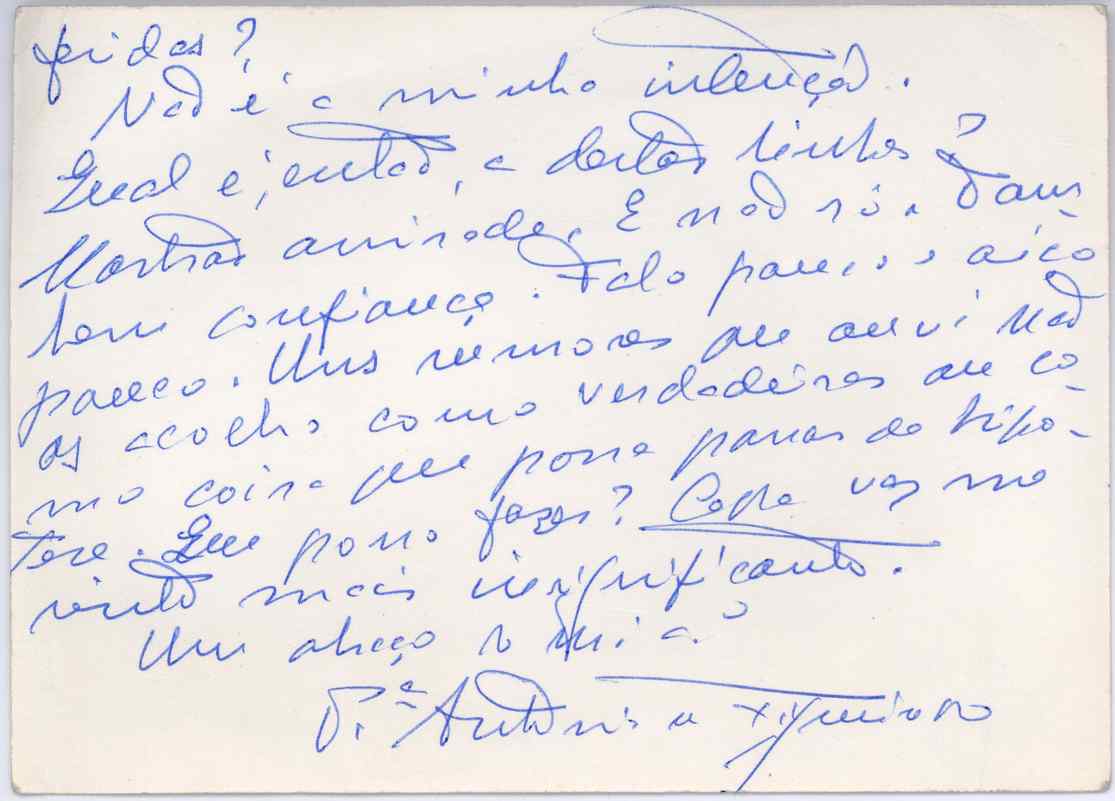 feridas?
Não é a minha intenção.
Qual é, então, a destas linhas?
Mostrar amizade. E não só. Dar-
tem confiança. Falo pouco, e ainda
pouco. Uns rumores que ouvi não
os acolho como verdadeiros ou co-
mo coisa que possa passar de hipó-
tese. Que posso fazer?
sinto mais insignificante.
Um abraço
P.e António